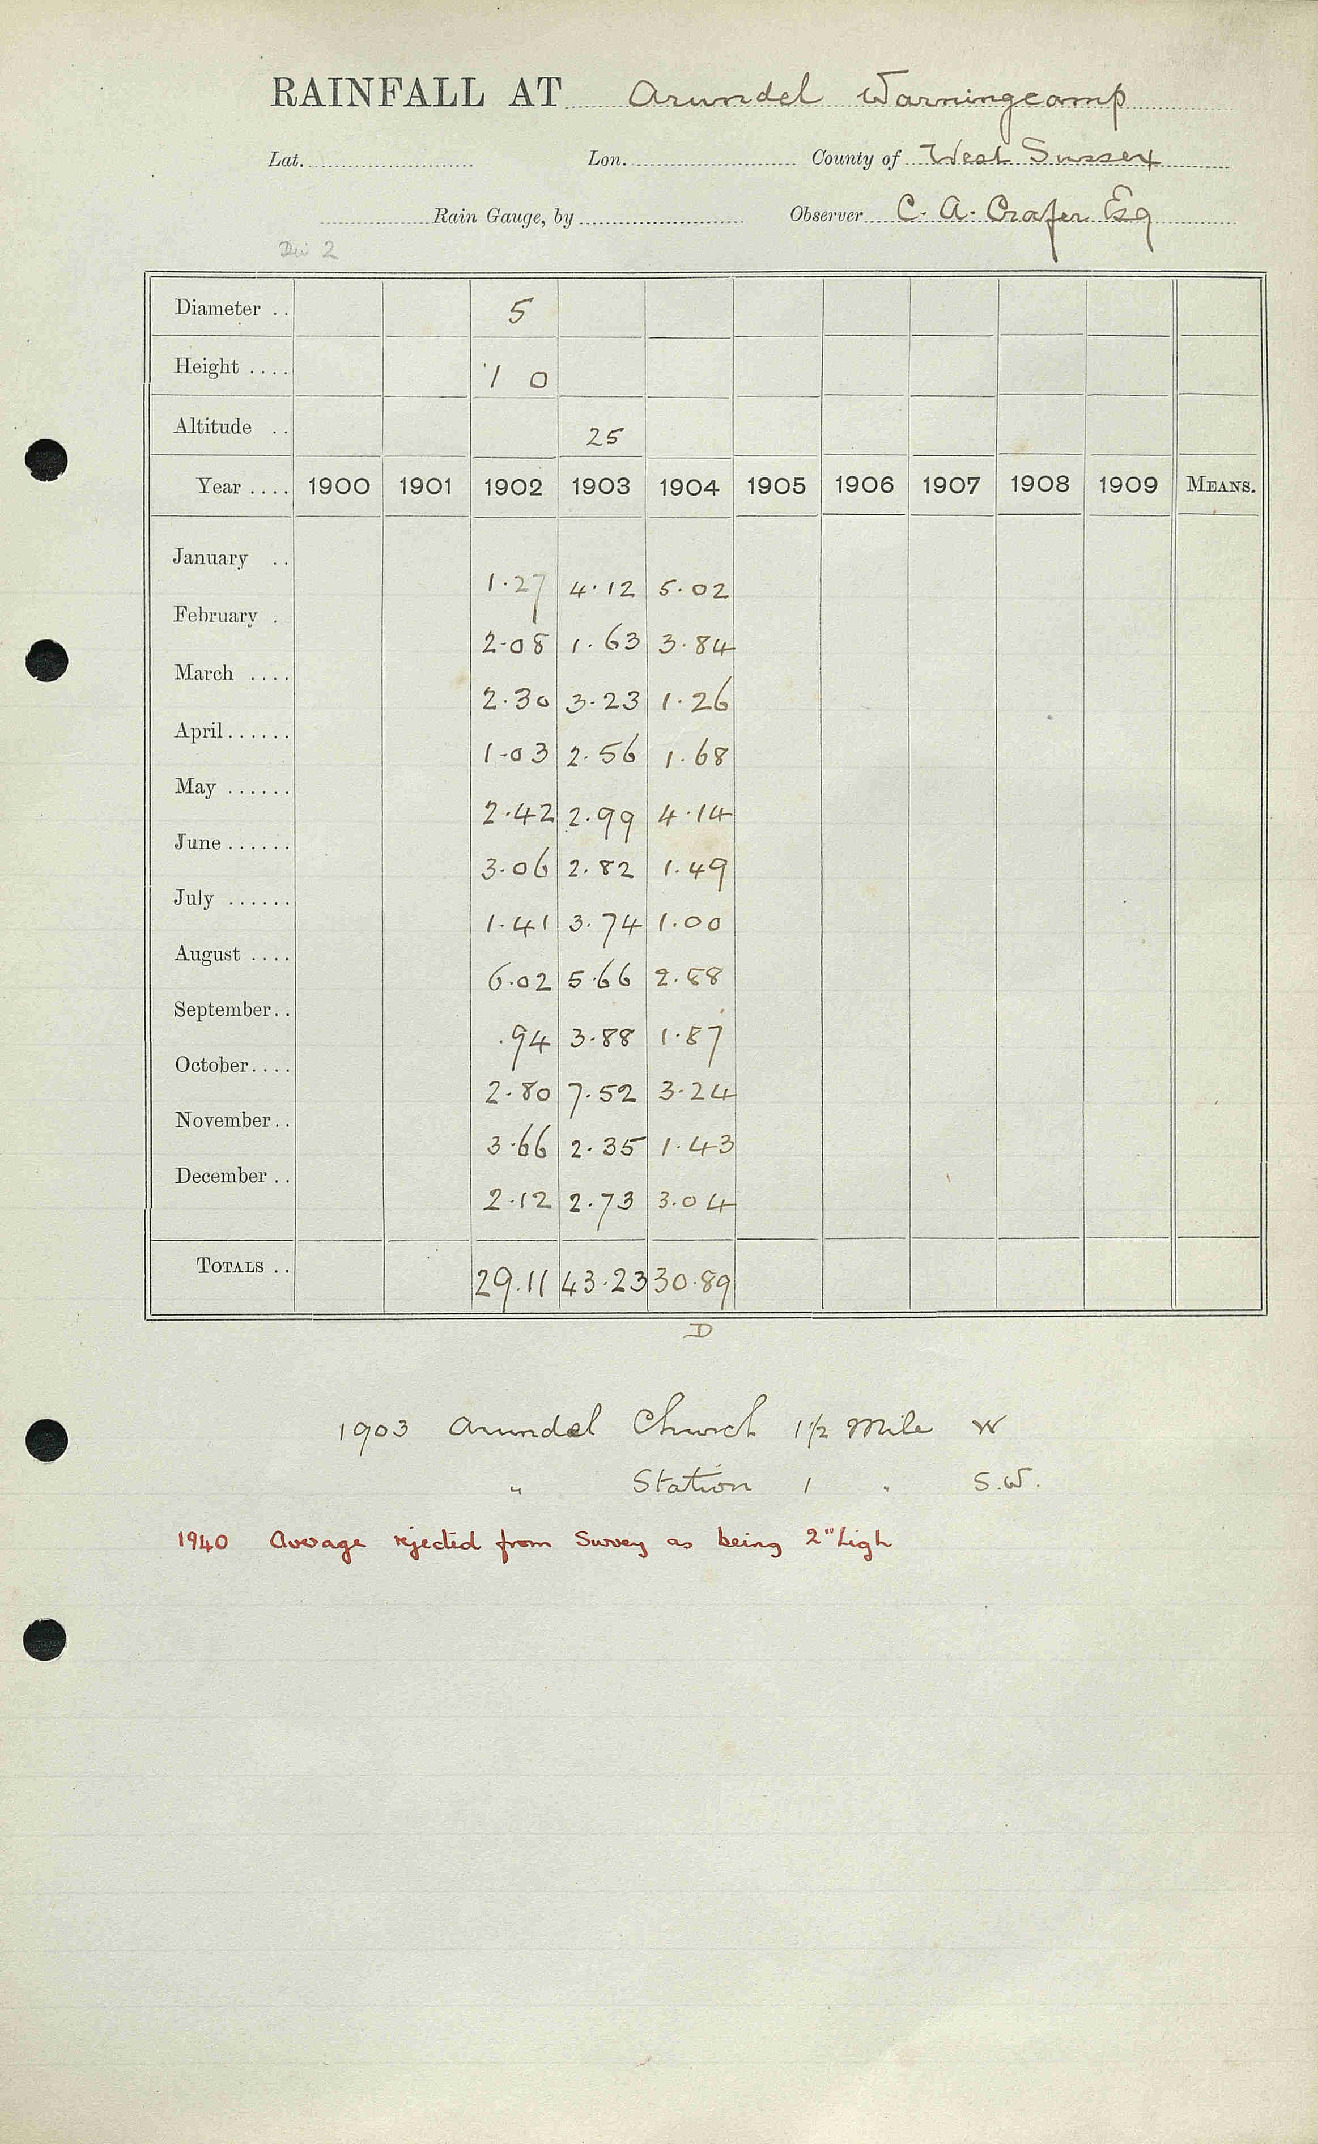 RAINFALL AT Arundel Warningcamp
Lat. Lon. County of West Sussex
Rain Gauge, by Observer C. A. Crafer Esq
Div 2
Diameter .. 5
Height .... 1 0
Altitude .. 25
Year .... 1900 1901 1902 1903 1904 1905 1906 1907 1908 1909 MEANS.
January .. 1.27 4.12 5.02
February . 2.08 1.63 3.84
March .... 2.30 3.23 1.26
April...... 1.03 2.56 1.68
May ...... 2.42 2.99 4.14
June ...... 3.06 2.82 1.49
July ...... 1.41 3.74 1.00
August .... 6.02 5.66 2.88
September.. .94 3.88 1.87
October.... 2.80 7.52 3.24
November.. 3.66 2.35 1.43
December .. 2.12 2.73 3.04
TOTALS .. 29.11 43.23 30.89
D
1903 Arundel Church 1 1/2 Mile W
" Station 1 " S.W.
1940 Average rejected from Survey as being 2" high